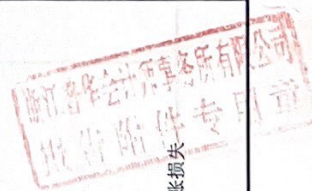 浙江浩华会计师事务所有限公司
报告附件专用章
账损失